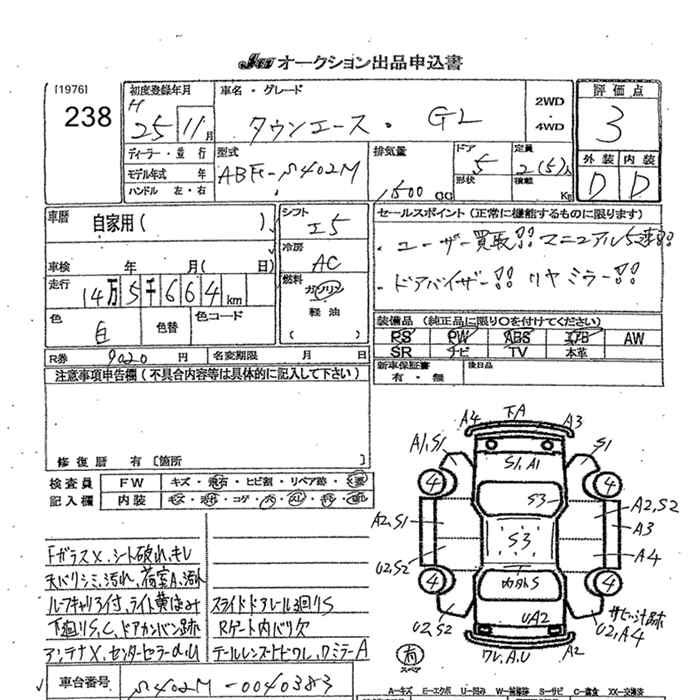 オークション出品申込書
[1976]
238
初度登録年月
H 25 11月
車名・グレード
タウンエース・ GL
2WD
・
4WD
評価点
3
ディーラー・並行
モデル年式 年
ハンドル 左・右
型式
ABF-S402M
排気量
1500 CC
ドア
5
形状
定員
2(5)人
積載 Kg
外装 内装
D D
車歴
自家用( )
シフト
I5
セールスポイント(正常に機能するものに限ります)
・ユーザー買取!! マニュアル5速!!
・ドアバイザー!! リヤミラー!!
車検 年 月( 日)
冷房
AC
走行
14万5千664km
燃料
ガソリン
軽油
( )
色
白
色替
色コード
装備品(純正品に限り○を付けてください)
PS PW ABS エアB AW
SR ナビ TV 本革
R券 9020 円
名変期限 月 日
新車保証書
有・無
後日品
注意事項申告欄(不具合内容等は具体的に記入して下さい)
修復歴 有 [箇所 ]
検査員
記入欄
FW
キズ・飛石・ヒビ割・リペア跡・
内装
FガラスX、シート破れ、キレ
天バリシミ、汚れ、荷室A、汚れ
ルーフキャリア付、ライト黄ばみ
下廻りS,C、ドアカンバン跡
スライドドアレール3廻りS
Rゲート内バリ欠
テールレンズヒビワレ、ワミラーA
A4 下A A3
A1,S1
S1
S1,A1
4 4
S3
A2,S2
A2,S1
A3
S3
A4
U2,S2
4 4
内外S
UA2
U2,S2
サビ、汁跡
U2,A4
ワレ,A,U
A2
有
スペア
車台番号
S402M-0040383
A-キズ E-エクボ U-凹み W-補修跡 S-サビ C-腐食 XX-交換済